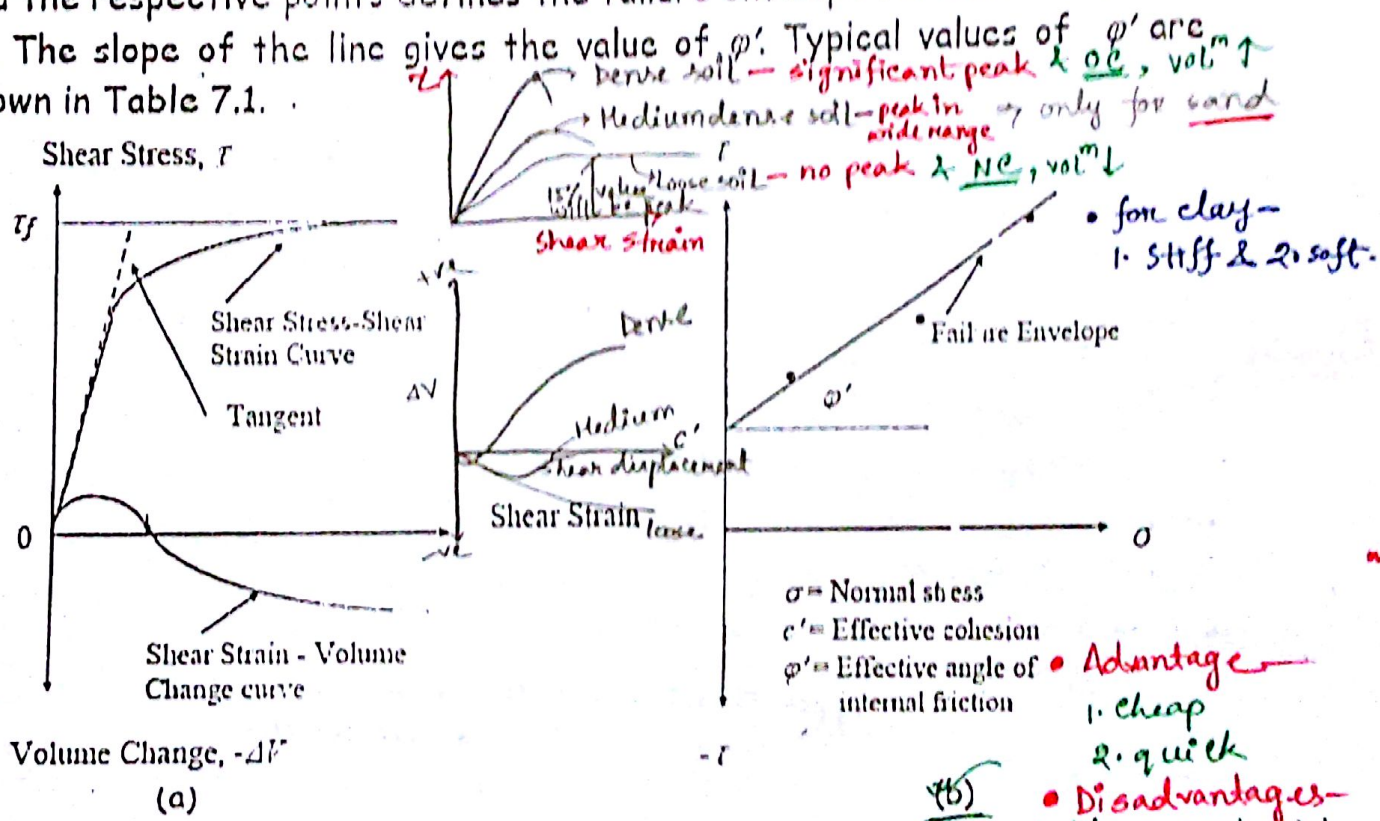 The slope of the line gives the value of φ'. Typical values of φ' are
own in Table 7.1.
Dense soil – significant peak & OC, volᵐ ↑
Medium dense soil – peak in wide range → only for sand
Loose soil – no peak & NC, volᵐ ↓
15%
Shear strain
Shear Stress, τ
τf
Shear Stress-Shear
Strain Curve
Tangent
0
Shear Strain - Volume
Change curve
Volume Change, -ΔV
(a)
+ve
ΔV
Dense
Medium
Shear displacement
loose
-ve
Shear Strain
τ
c'
φ'
Failure Envelope
σ
-τ
• for clay –
1. Stiff & 2. soft.
σ = Normal stress
c' = Effective cohesion
φ' = Effective angle of
internal friction
(b)
• Advantage –
1. Cheap
2. quick
• Disadvantages –